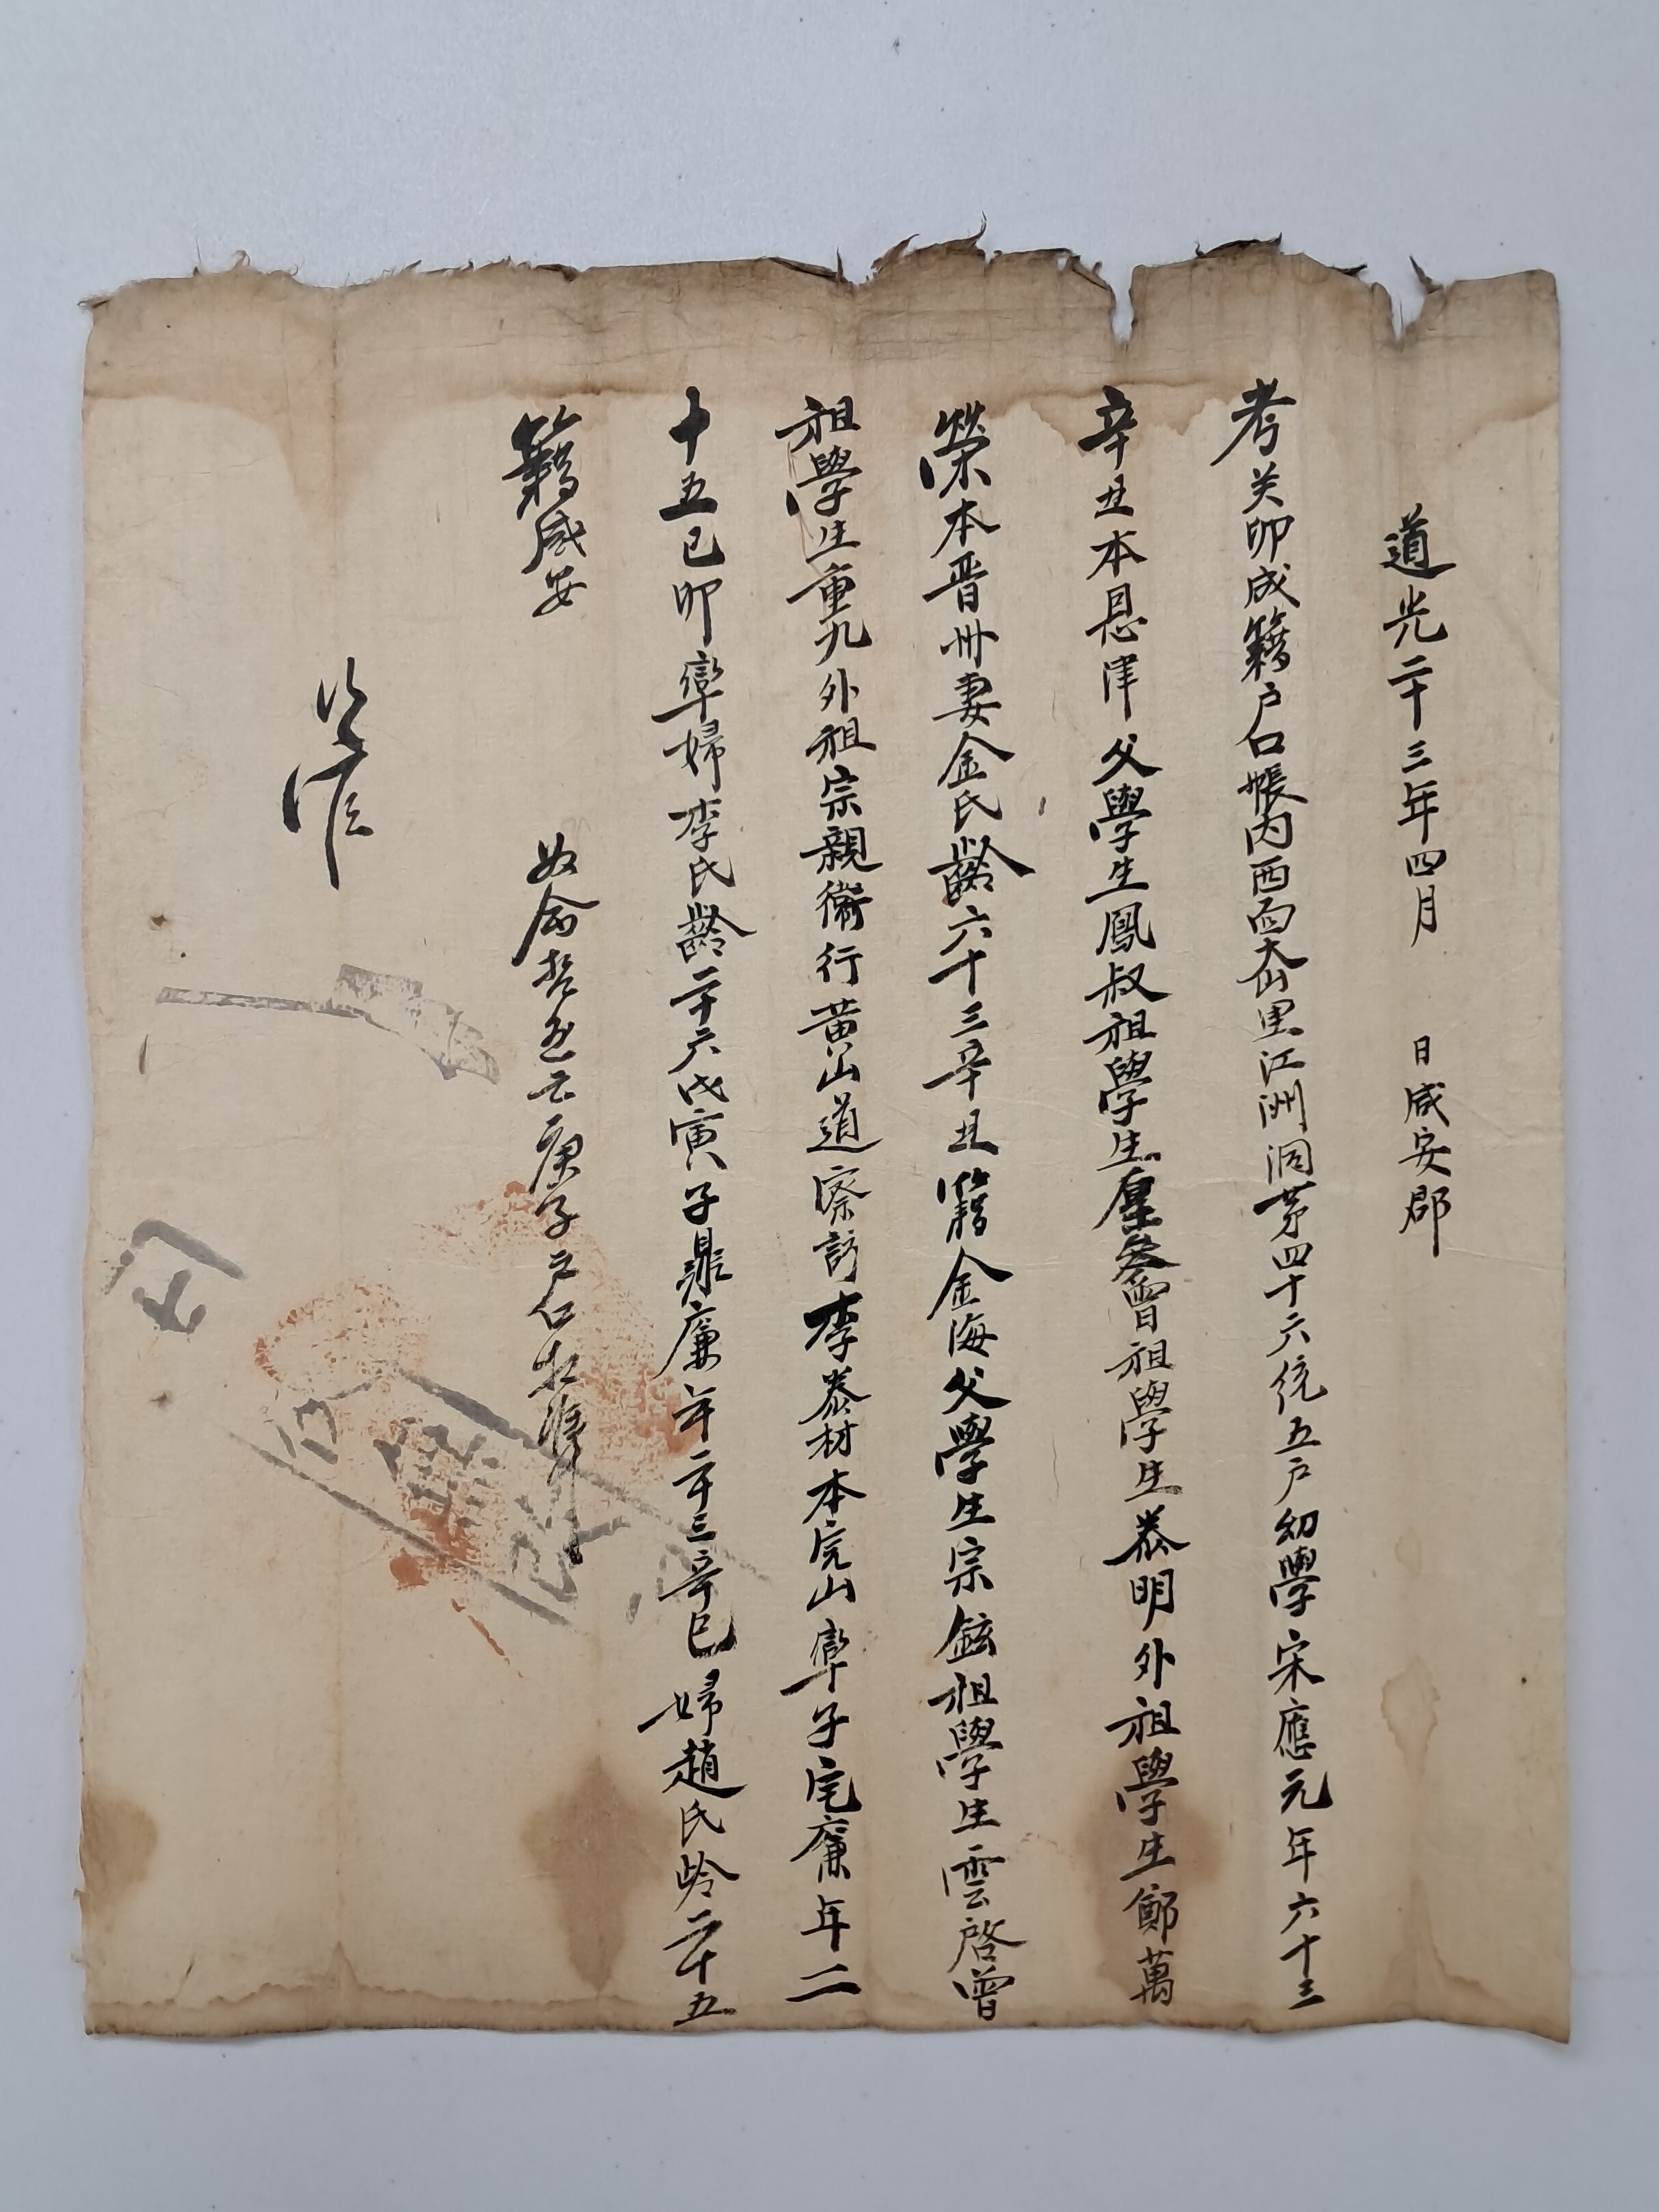 道光二十三年四月 日咸安郡
考癸卯成籍户口帳内西面大山里江洲洞苐四十六統五户幼學宋應元年六十三
辛丑本恩津父學生鳳叔祖學生厚參曾祖學生泰明外祖學生鄭萬
榮本晋州妻金氏齡六十三辛丑籍金海父學生宗鉉祖學生雲啓曾
祖學生重九外祖宗親衛行黄山道察訪李泰材本完山率子宅廉年二
十五己卯率婦李氏齡二十六戊寅子鼎廉年二十三辛巳婦趙氏齡二十五
籍咸安
奴命哲 庚子户口相準